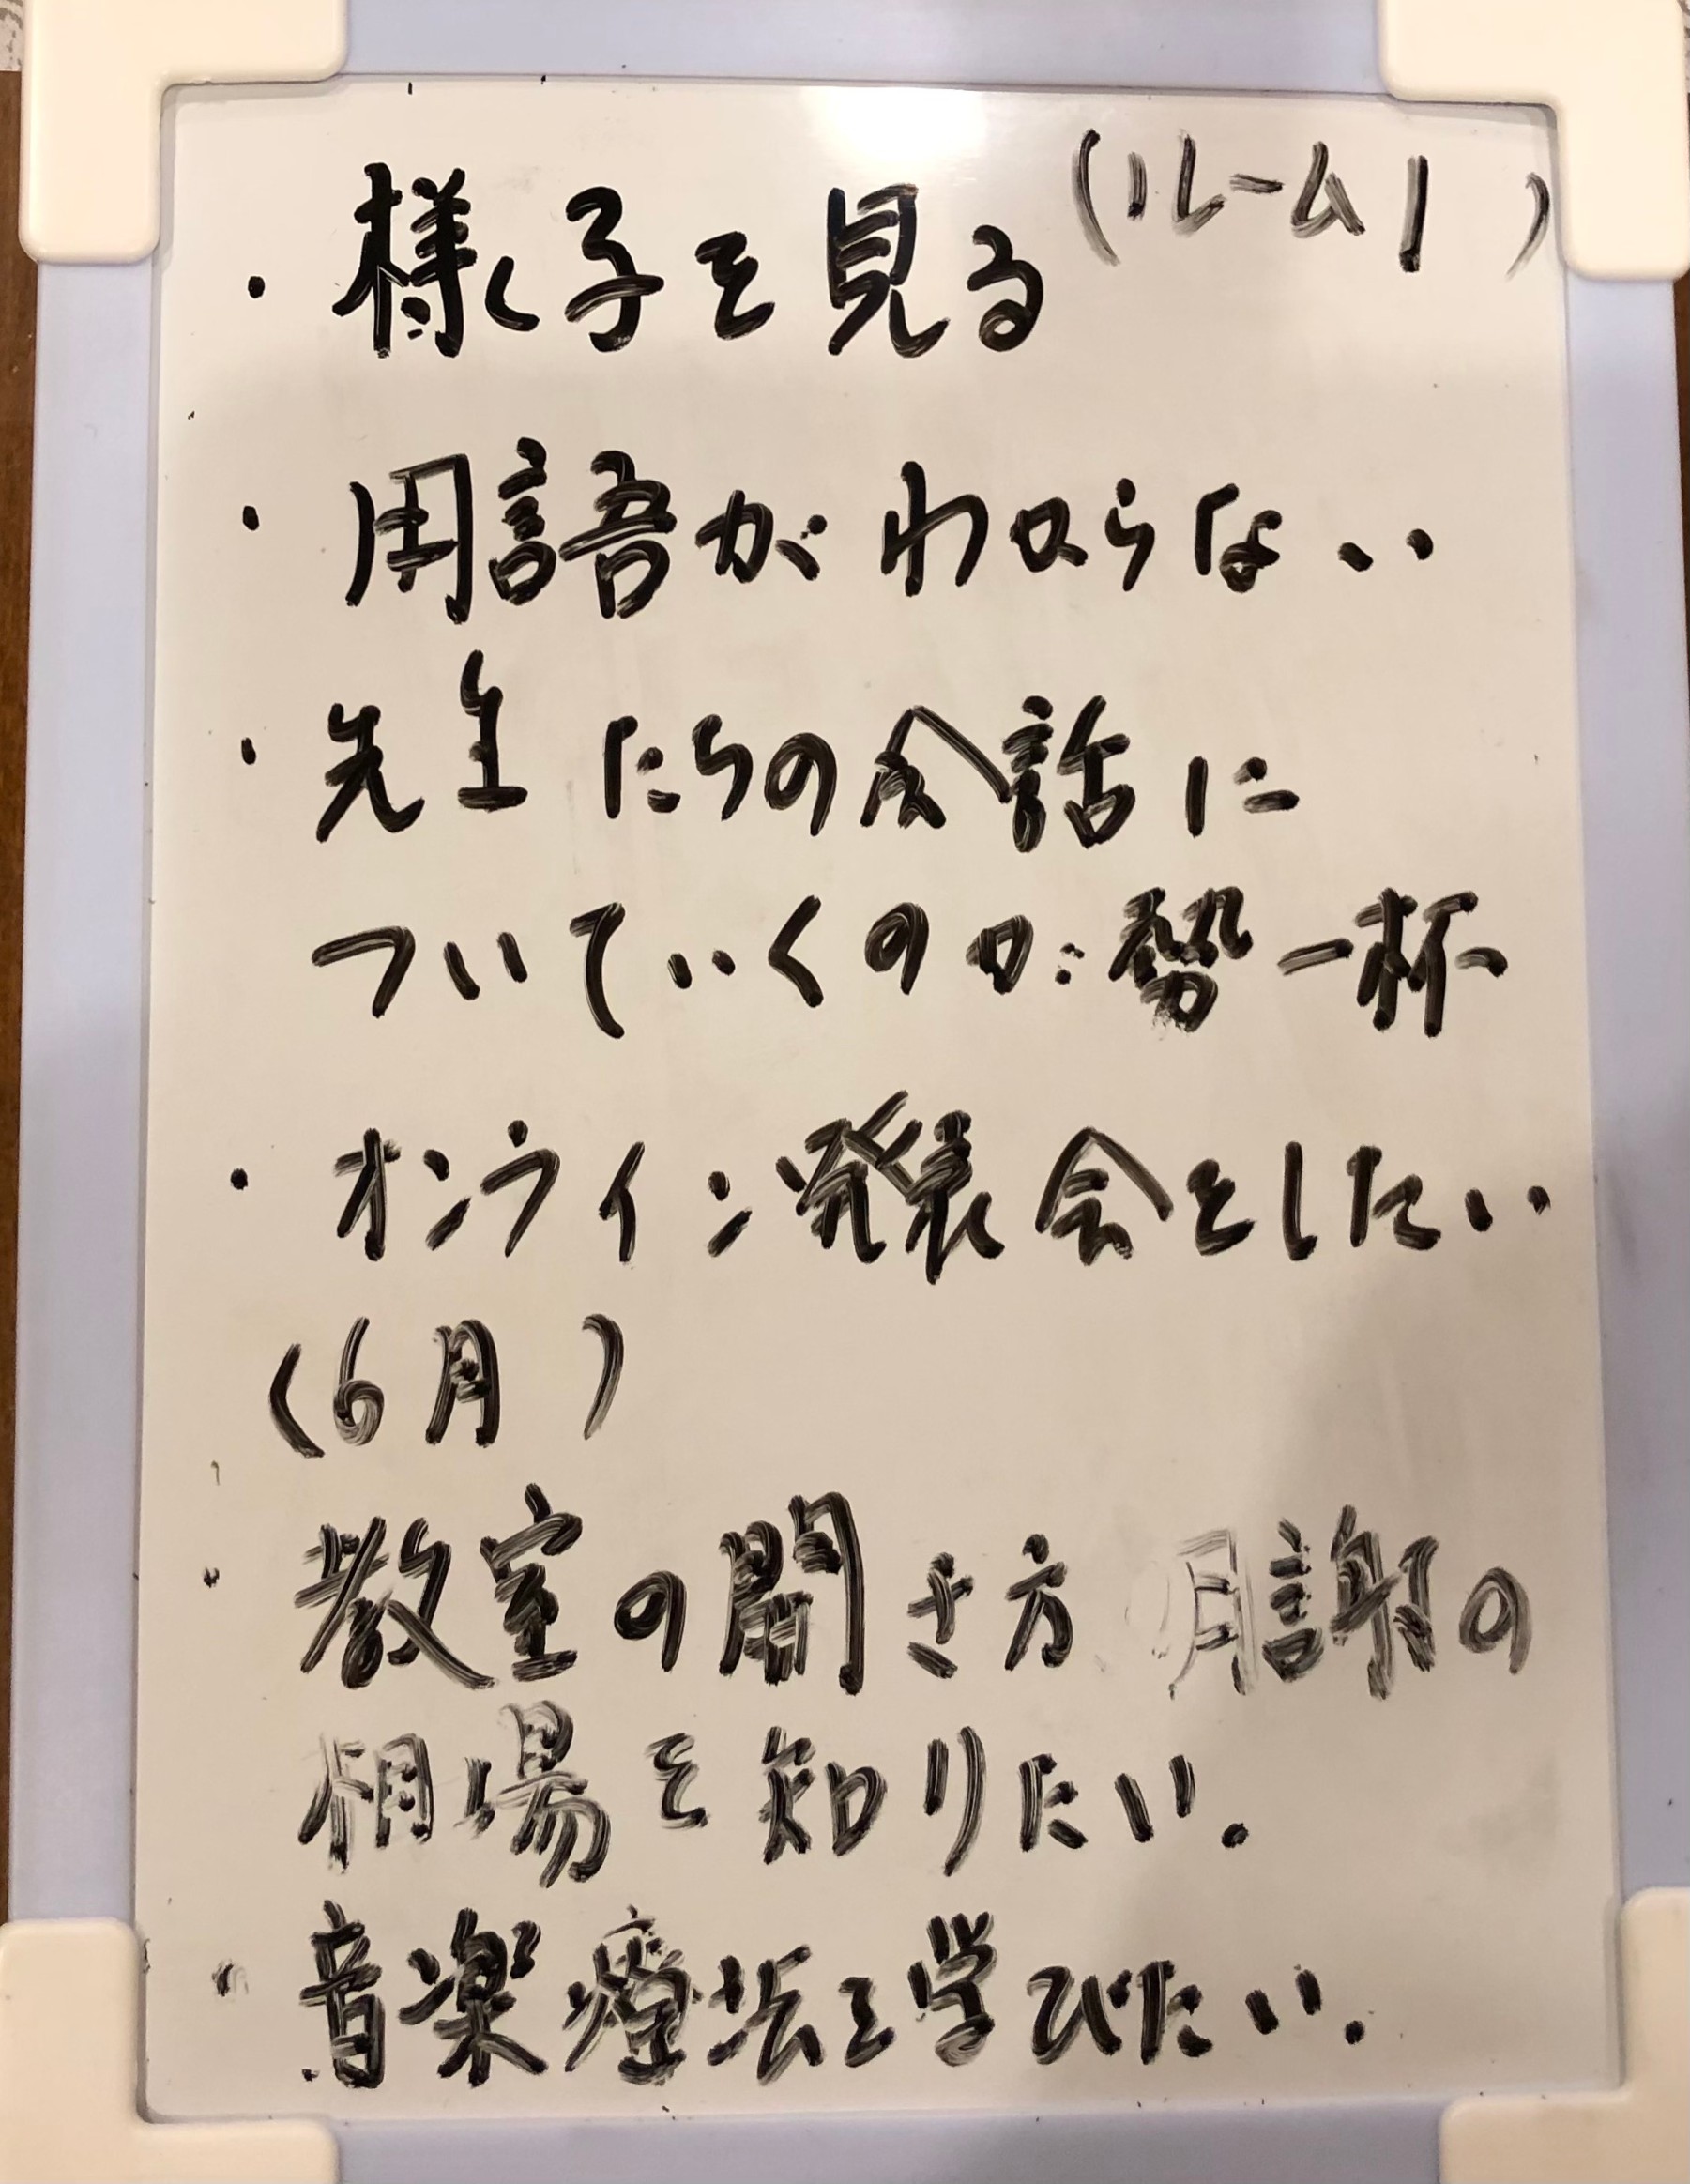 ・様子を見る（ルーム1）
・用語がわからない
・先生たちの会話に
ついていくのが勢一杯
・オンライン発表会をしたい
（6月）
・教室の開き方 月謝の
相場を知りたい.
・音楽療法を学びたい.